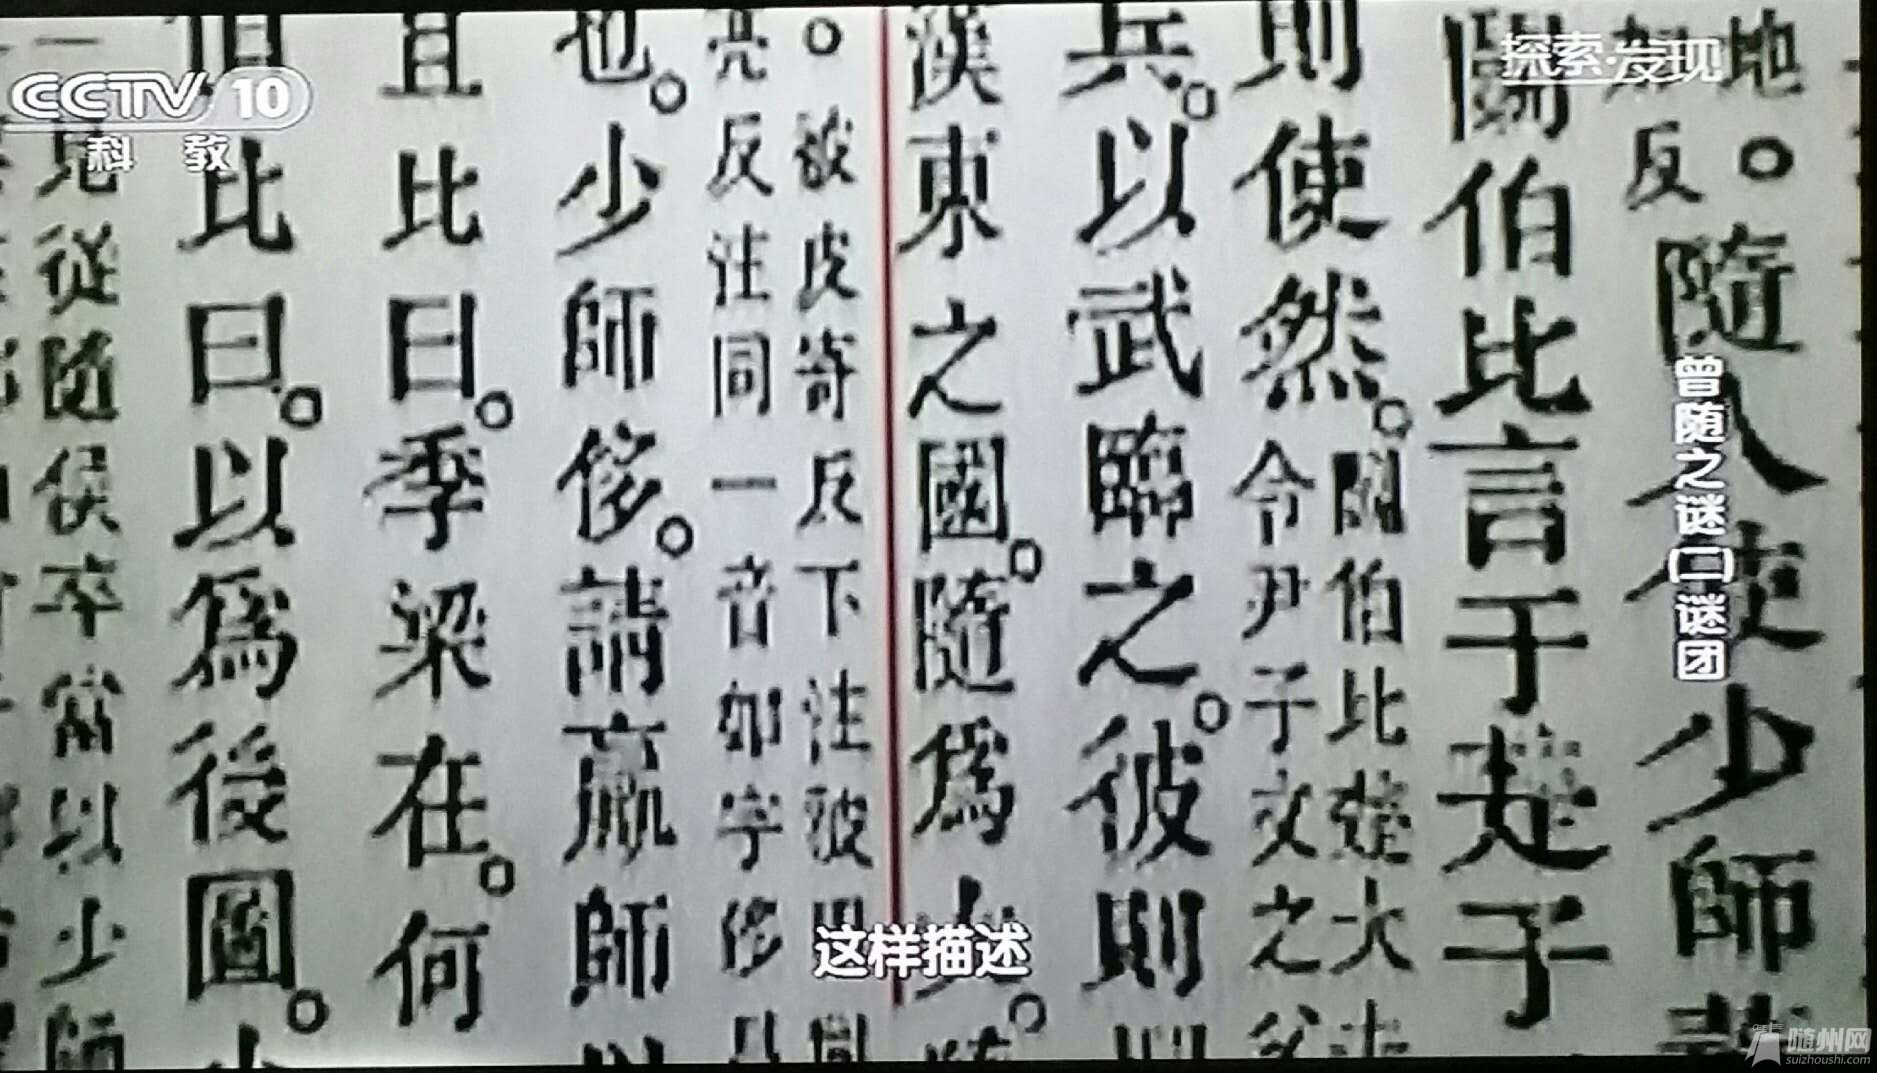 CCTV 10
科教
探索·发现
曾随之谜(二)谜团
地。
反
隨人使少師董
鬬伯比言于楚子
則使然。
鬬伯比楚大夫
令尹子文之父
兵。以武臨之。彼則
漢東之國。隨爲大。隨
。被皮寄反下注被甲同
亮反注同一音如字侈昌
也。少師侈。請羸師以
且比曰。季梁在。何
伯比曰。以爲後圖。少
一見從隨侯卒當以少師
这样描述
随州网
suizhoushi.com